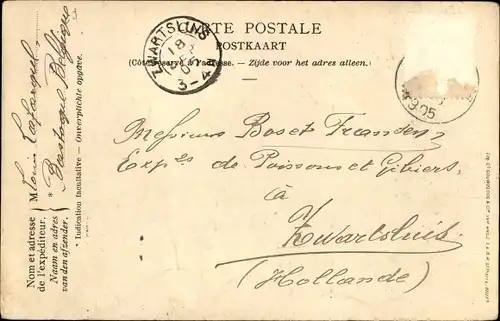 CARTE POSTALE
POSTKAART
(Côté réservé à l'adresse. — Zijde voor het adres alleen.)
ZWARTSLUIS
18
05
3-4
1905
Messieurs Boset Franden
Exp^es de Poissons et Gibiers
à
Zwartsluis
(Hollande)
Nom et adresse
de l'expéditeur.
Naam en adres
van den afzender.
M Louis
* Bastogne Belgique
* Indication facultative — Onverplichte opgave.